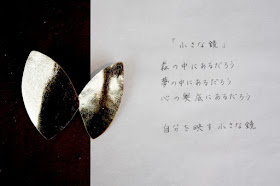 「小さな鏡」
森の中にあるだろう
夢の中にあるだろう
心の奥底にあるだろう
自分を映す小さな鏡